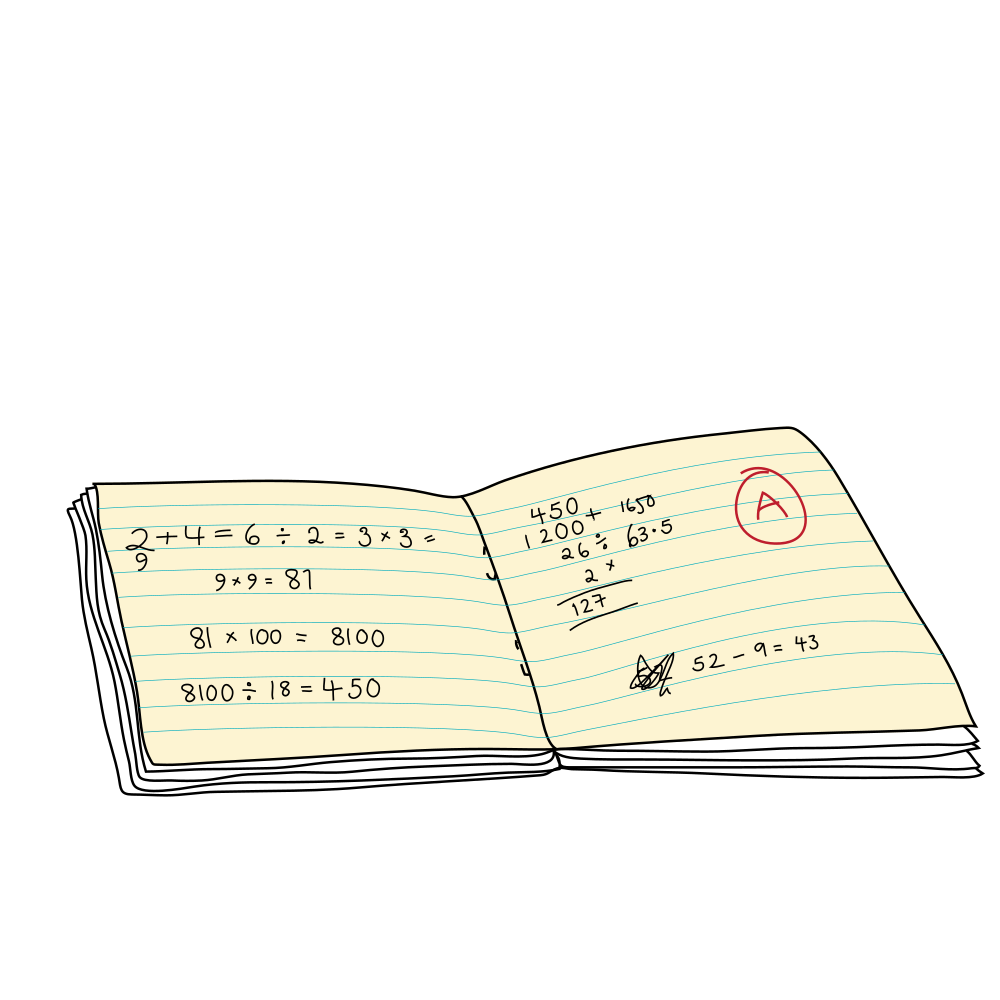 2 + 4 = 6 ÷ 2 = 3 × 3 =
9
9 × 9 = 81
81 × 100 = 8100
8100 ÷ 18 = 450
450
1200+ 1650
26÷ 63.5
2 ×
127
52 - 9 = 43
A